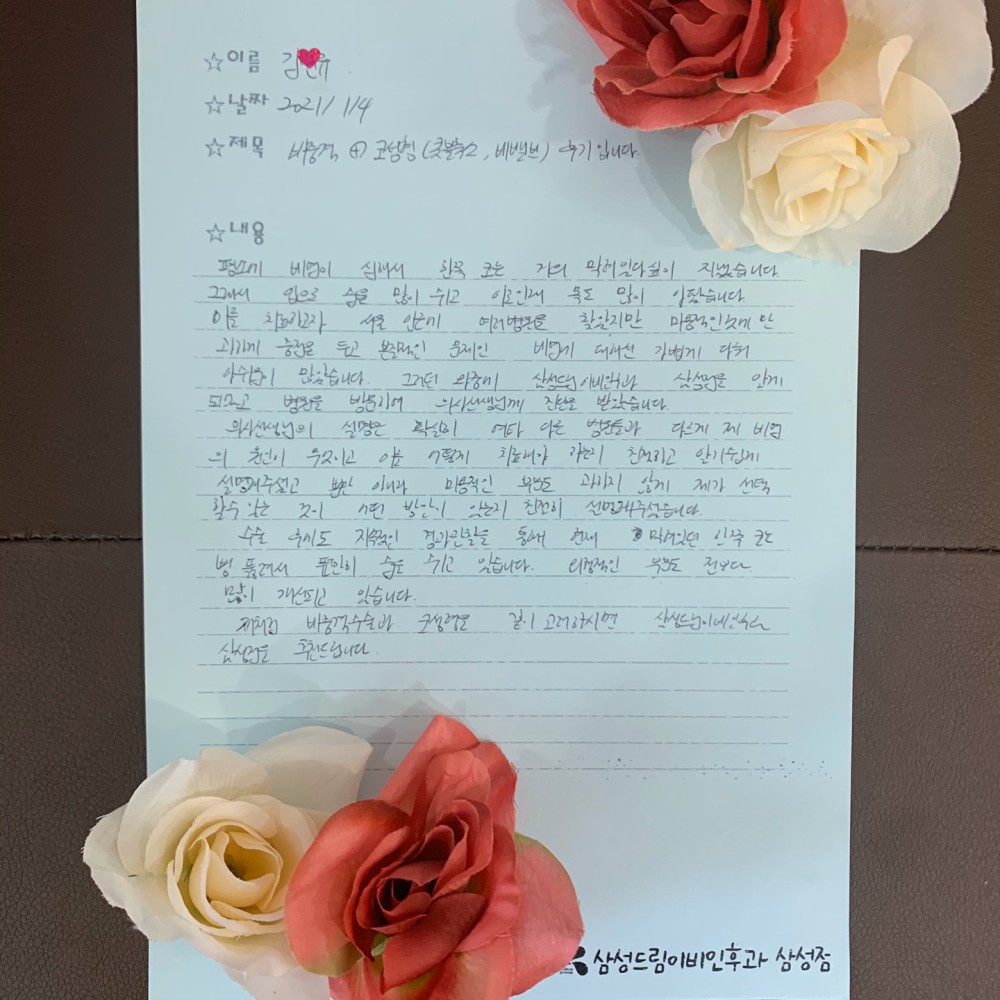 ☆이름 김♥유
☆날짜 2021/ 1/4
☆제목 비중격 ⊕ 코성형 (콧볼축소, 비밸브) 후기입니다.
☆내용
평소에 비염이 심해서 한쪽 코는 거의 막혀있다싶이 지냈습니다.
그래서 입으로 숨을 많이 쉬고 이로인해 목도 많이 아팠습니다.
이를 치료하고자 서울 인근에 여러병원을 찾았지만 미용적인것에만
과하게 중점을 두고 본질적인 문제인 비염에 대해선 가볍게 다뤄
아쉬움이 많았습니다. 그러던 와중에 삼성드림이비인후과 삼성점을 알게
되었고 병원을 방문하여 의사선생님께 진단을 받았습니다.
의사선생님의 설명은 확실히 여타 다른 병원들과 다르게 제 비염
의 원인이 무엇이고 이를 어떻게 치료해야 하는지 친절하고 알기쉽게
설명해주셨고 뿐만 아니라 미용적인 부분도 과하지 않게 제가 선택
할수 있는 것이 어떤 방안이 있는지 친절히 설명해주셨습니다.
수술 후에도 지속적인 경과관찰을 통해 현재 막혀있던 한쪽 코는
뻥 뚫려서 편안히 숨도 쉬고 있습니다. 외형적인 부분도 전보다
많이 개선되고 있습니다.
저처럼 비중격수술과 코성형을 같이 고려하시면 삼성드림이비인후과
삼성점을 추천드립니다.
삼성드림이비인후과 삼성점